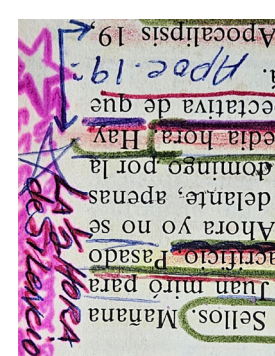 Sellos. Mañana
Juan miró para
acrificio. Pasado
Ahora ya no se
delante, apenas
domingo por la
edia hora. Hay
ectativa de que
a. Apoc. 19:
Apocalipsis 19,
La ½ Hora
de Silencio